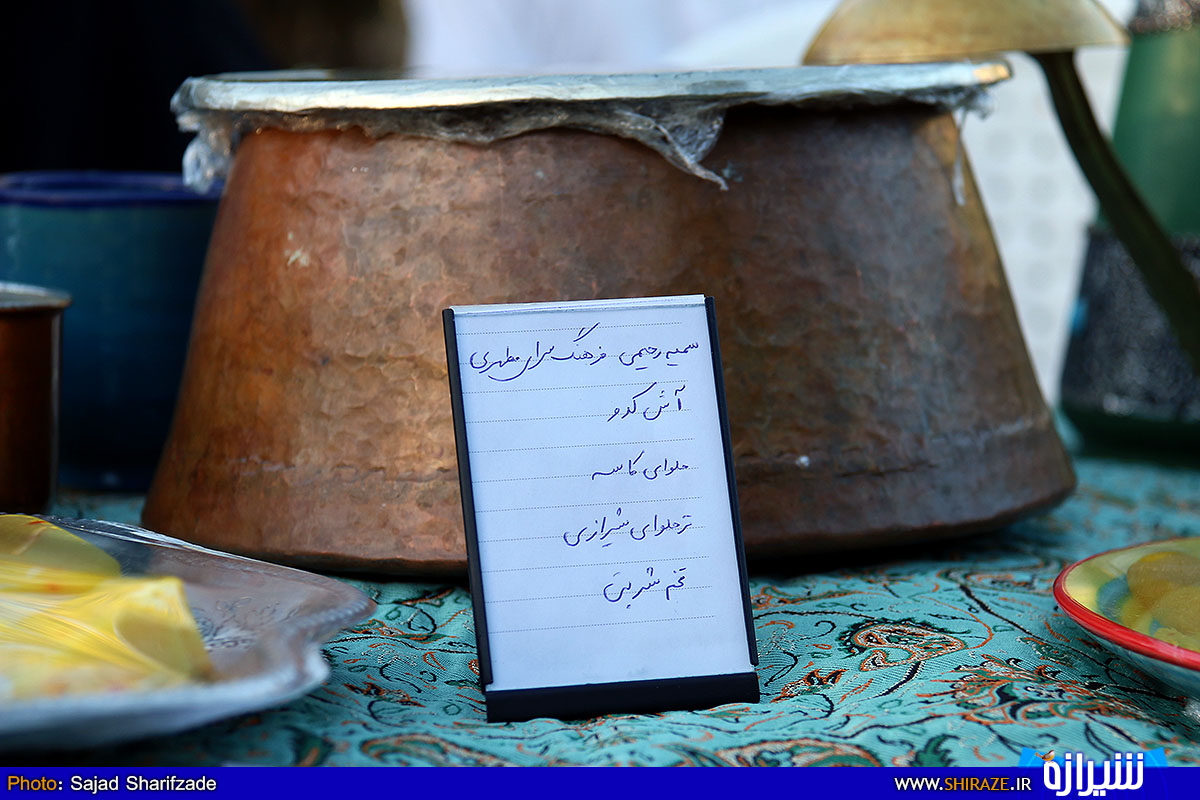 سمیه رحیمی فرهنگ سرای مطهری
آش کدو
حلوای کاسه
ترحلوای شیرازی
تخم شربت
Photo: Sajad Sharifzade
www.SHIRAZE.IR
شیرازه